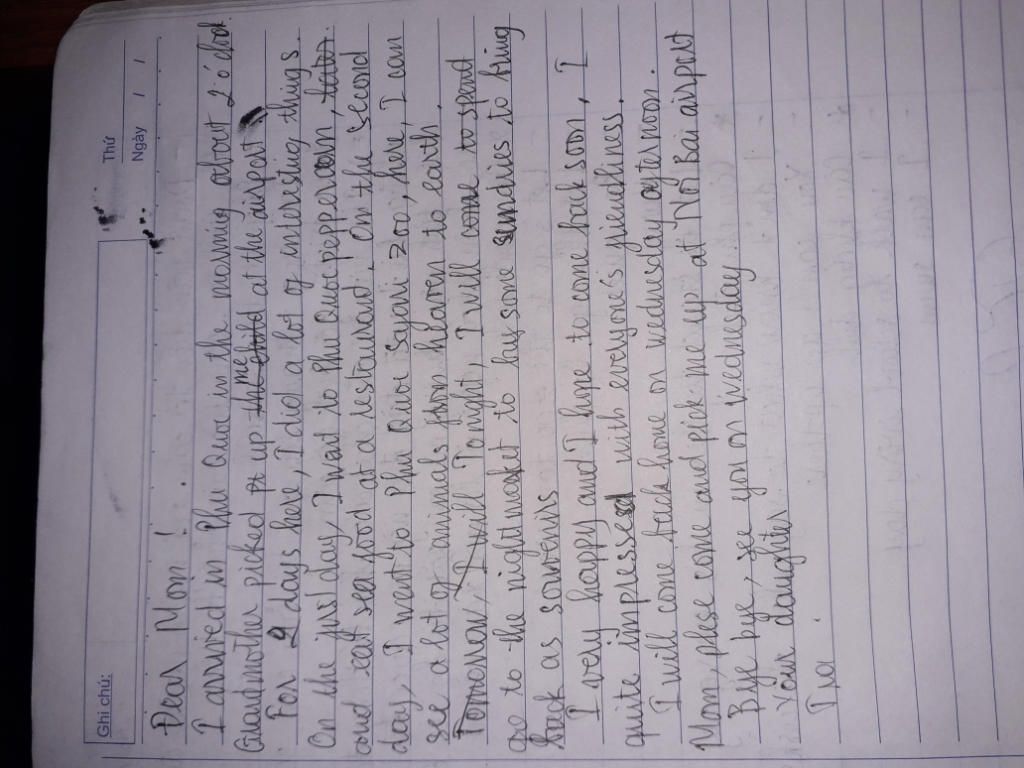 Ghi chú:
Thứ
Ngày / /
Dear Mom !
I arrived in Phu Quoc in the morning about 2 o'clock
Grandmother picked up me at the airport
For 2 days here, I did a lot of interesting things
On the first day, I want to Phu Quoc pepper
and eat sea food at a restaurand. On the second
day, I went to Phu Quoc Safari zoo, here, I can
see a lot of animals from heaven to earth.
Tonight, I will
go to the night market to buy some sundies to bring
back as sovernirs
I very happy and I hope to come back soon, I
quite implessed with everyone's friendliness.
I will come back home on wednesday afternoon.
Mom, please come and pick me up at Noi Bai airport
Bye bye, see you on wednesday
Your daughter
Tra